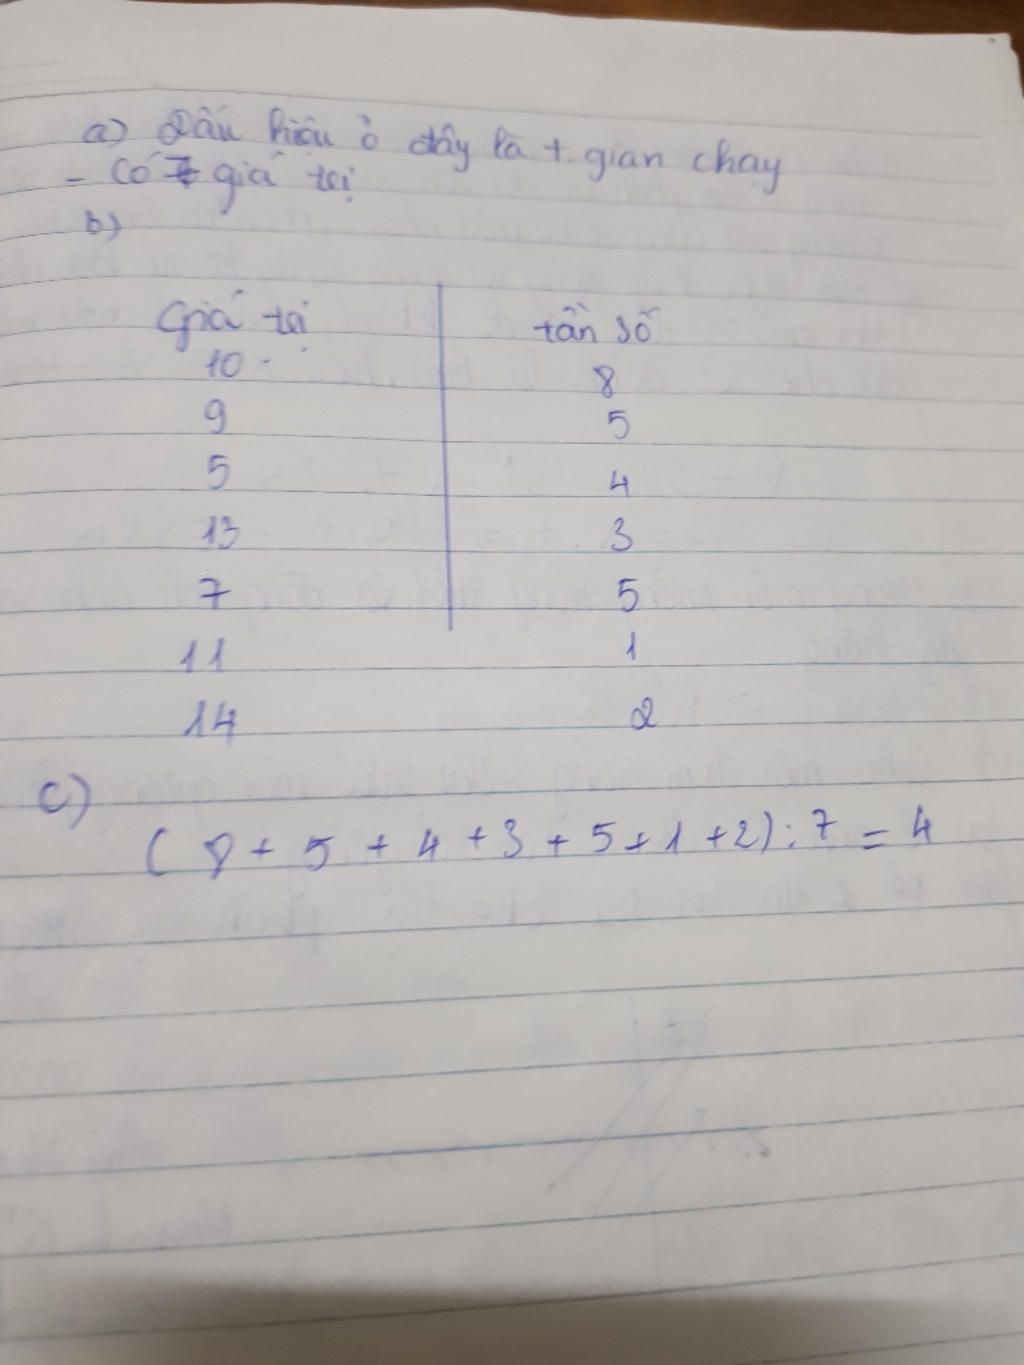 a) Dấu hiệu ở đây là t. gian chạy
- Có 7 giá trị
b)
Giá tị tần số
10 8
9 5
5 4
13 3
7 5
11 1
14 2
c)
( 8 + 5 + 4 + 3 + 5 + 1 + 2) : 7 = 4